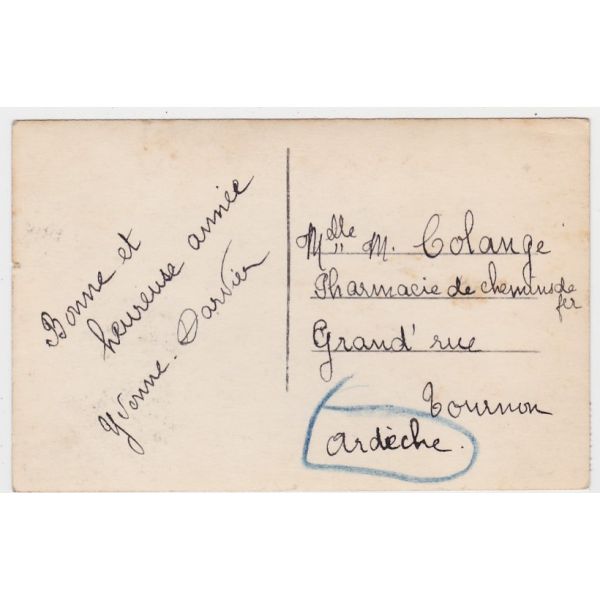 Bonne et
heureuse année
Yvonne. Darvier
Mdlle M. Colange
Pharmacie de chemins de
fer
Grand' rue
Tournon
Ardèche.